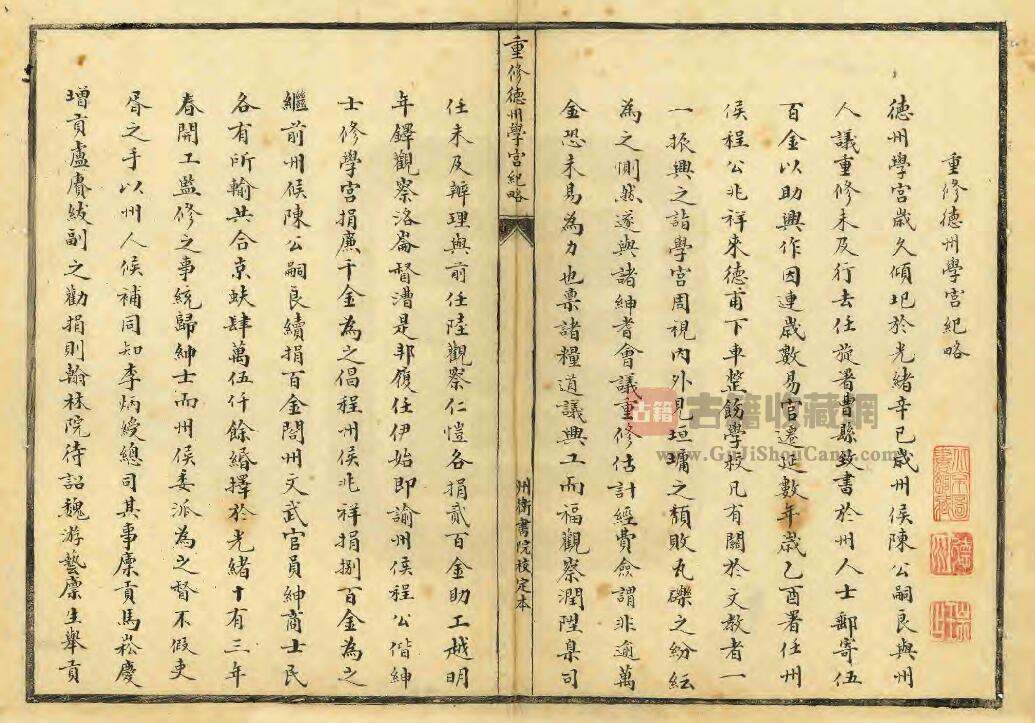 重修德州學宮紀略
德州學宮歲久傾圮於光緒辛巳歲州侯陳公嗣良與州
人議重修未及行去任旋署曹縣致書於州人士郵寄伍
百金以助興作因連歲數易官遷延數年歲乙酉署任州
侯程公兆祥來德甫下車整飭學校凡有關於文教者一
一振興之詣學宮周視內外見垣墉之頹敗瓦礫之紛紜
為之惻然遂與諸紳耆會議重修估計經費僉謂非逾萬
金恐未易為力也稟諸糧道議興工而福觀察潤陞臬司
重修德州學宮紀略
州衛書院校定本
任未及辦理與前任陸觀察仁愷各捐貳百金助工越明
年鐸觀察洛崙督漕是邦履任伊始即諭州侯程公偕紳
士修學宮捐廉千金為之倡程州侯兆祥捐捌百金為之
繼前州侯陳公嗣良續捐百金閤州文武官員紳商士民
各有所輸共合京蚨肆萬伍仟餘緡擇於光緒十有三年
春開工監修之事統歸紳士而州侯委派為之督不假吏
胥之手以州人候補同知李炳綬總司其事廩貢馬崧慶
增貢盧賡紱副之勸捐則翰林院待詔魏游藝廩生舉貢
古籍
古籍收藏網
www.GuJiShouCang.com